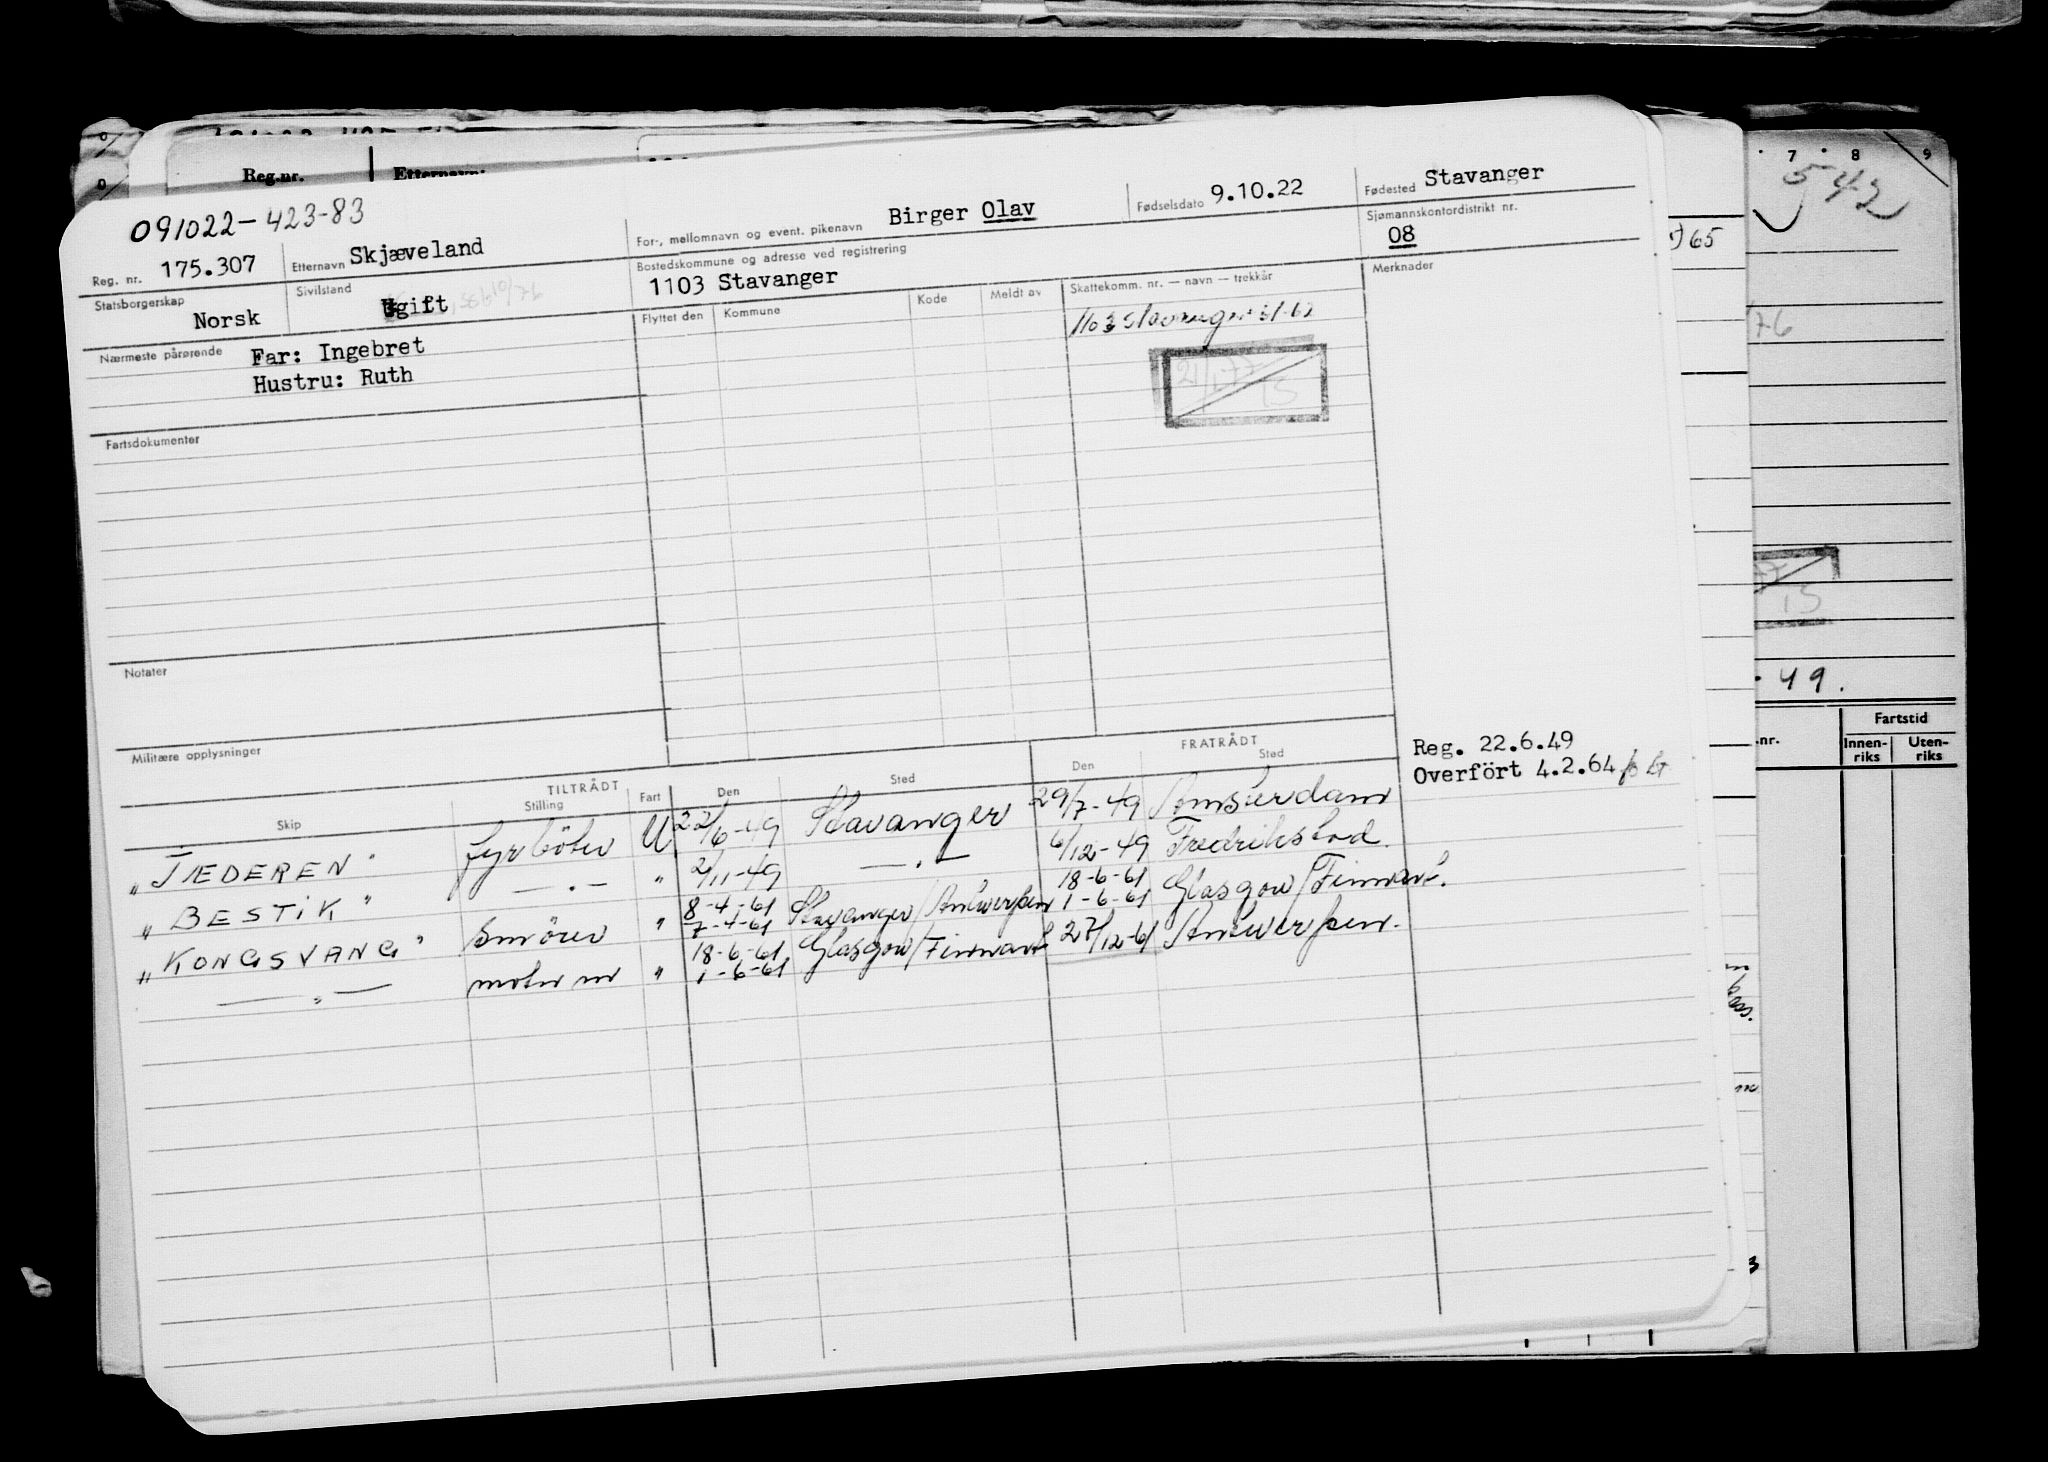 Reg.nr. Etternavn:
091022-423-83
Reg. nr. 175.307 Etternavn Skjæveland For-, mellomnavn og event. pikenavn Birger Olav Fødselsdato 9.10.22 Fødested Stavanger
Statsborgerskap Norsk Sivilstand gift Bostedskommune og adresse ved registrering 1103 Stavanger Sjømannskontordistrikt nr. 08
Nærmeste pårørende Far: Ingebret
Hustru: Ruth
Flyttet den Kommune Kode Meldt av Skattekomm. nr. — navn — trekkår Merknader
1103 Stavanger 61-62
Fartsdokumenter
Notater
Militære opplysninger
Reg. 22.6.49
Overfört 4.2.64
TILTRÅDT FRATRÅDT
Skip Stilling Fart Den Sted Den Sted
"JÆDEREN" fyrböter U 22/6-49 Stavanger 29/7-49 Amsterdam
"BESTIK" —.— " 2/11-49 —.— 6/12-49 Fredrikstad.
"KONGSVANG" Smörer " 8-4-61 7-4-61 Stavanger/Antwerpen 18-6-61 1-6-61 Glasgow/Finnart.
—"— motor m " 18-6-61 1-6-61 Glasgow/Finnart 27/12-61 Antwerpen.
7 8 9
542
65
76
15
49.
nr. Fartstid
Innen-riks Uten-riks